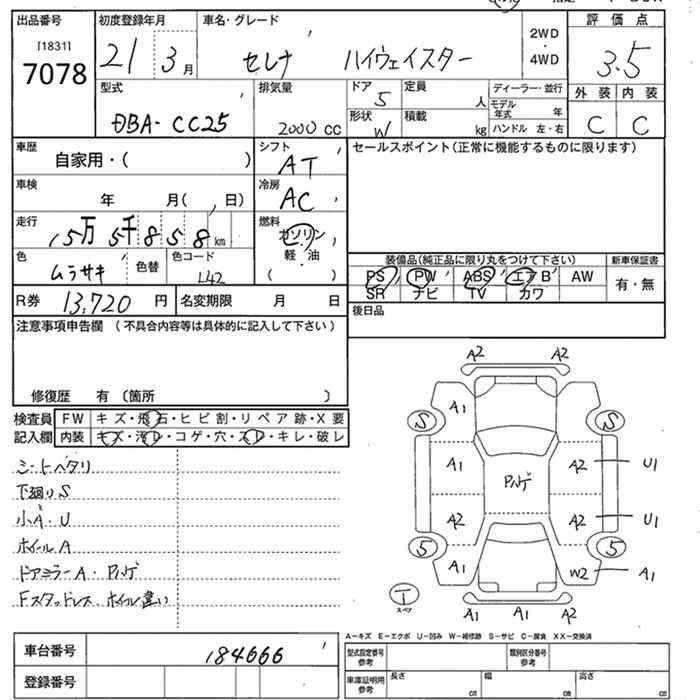 出品番号 初度登録年月 車名・グレード 2WD・4WD 評価点
[1831]
7078
21 3月 セレナ ハイウェイスター 3.5
型式 排気量 ドア 定員 ディーラー・並行 外装 内装
DBA-CC25 2000cc 5 人 モデル年式 年 C C
形状 積載
W kg ハンドル 左・右
車歴 シフト セールスポイント(正常に機能するものに限ります)
自家用・( ) AT
車検 冷房
年 月( 日) AC
走行 燃料
15万 5千 8 5 8 km ガソリン
軽・油
( )
色 色替 色コード 装備品(純正品に限り丸をつけて下さい) 新車保証書
ムラサキ L42 PS PW ABS エアB AW 有・無
SR ナビ TV カワ
R券 13,720 円 名変期限 月 日 後日品
注意事項申告欄(不具合内容等は具体的に記入して下さい)
修復歴 有〔箇所 〕
検査員記入欄 FW キズ・飛石・ヒビ割・リペア跡・X要
内装 キズ・汚レ・コゲ・穴・スレ・キレ・破レ
シートヘタリ
下廻りS
小A・U
ホイールA
ドアミラーA・Pハゲ
Fスタッドレス・ホイル違い
A2 A2
S A1 S
A1 Pハゲ A2 U1
A2 A2 U1
5 A1 5 W2 A1
T スペア
A1 A1 A2
A-キズ E-エクボ U-凹み W-補修跡 S-サビ C-腐食 XX-交換済
車台番号 184666 型式指定番号参考 類別区分番号参考
登録番号 車庫証明用参考 長さ cm 幅 cm 高さ cm